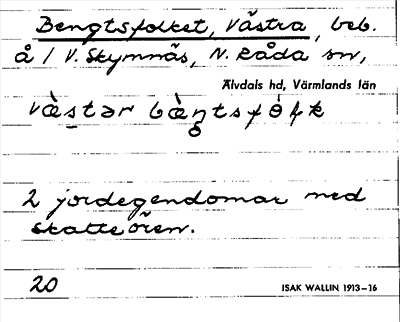 Bengtsfolket, Västra, beb.
å 1 V. Skymnäs, N. Råda sn,
Älvdals hd, Värmlands län
2 jordegendomar med
skatteören.
20
ISAK WALLIN 1913–16